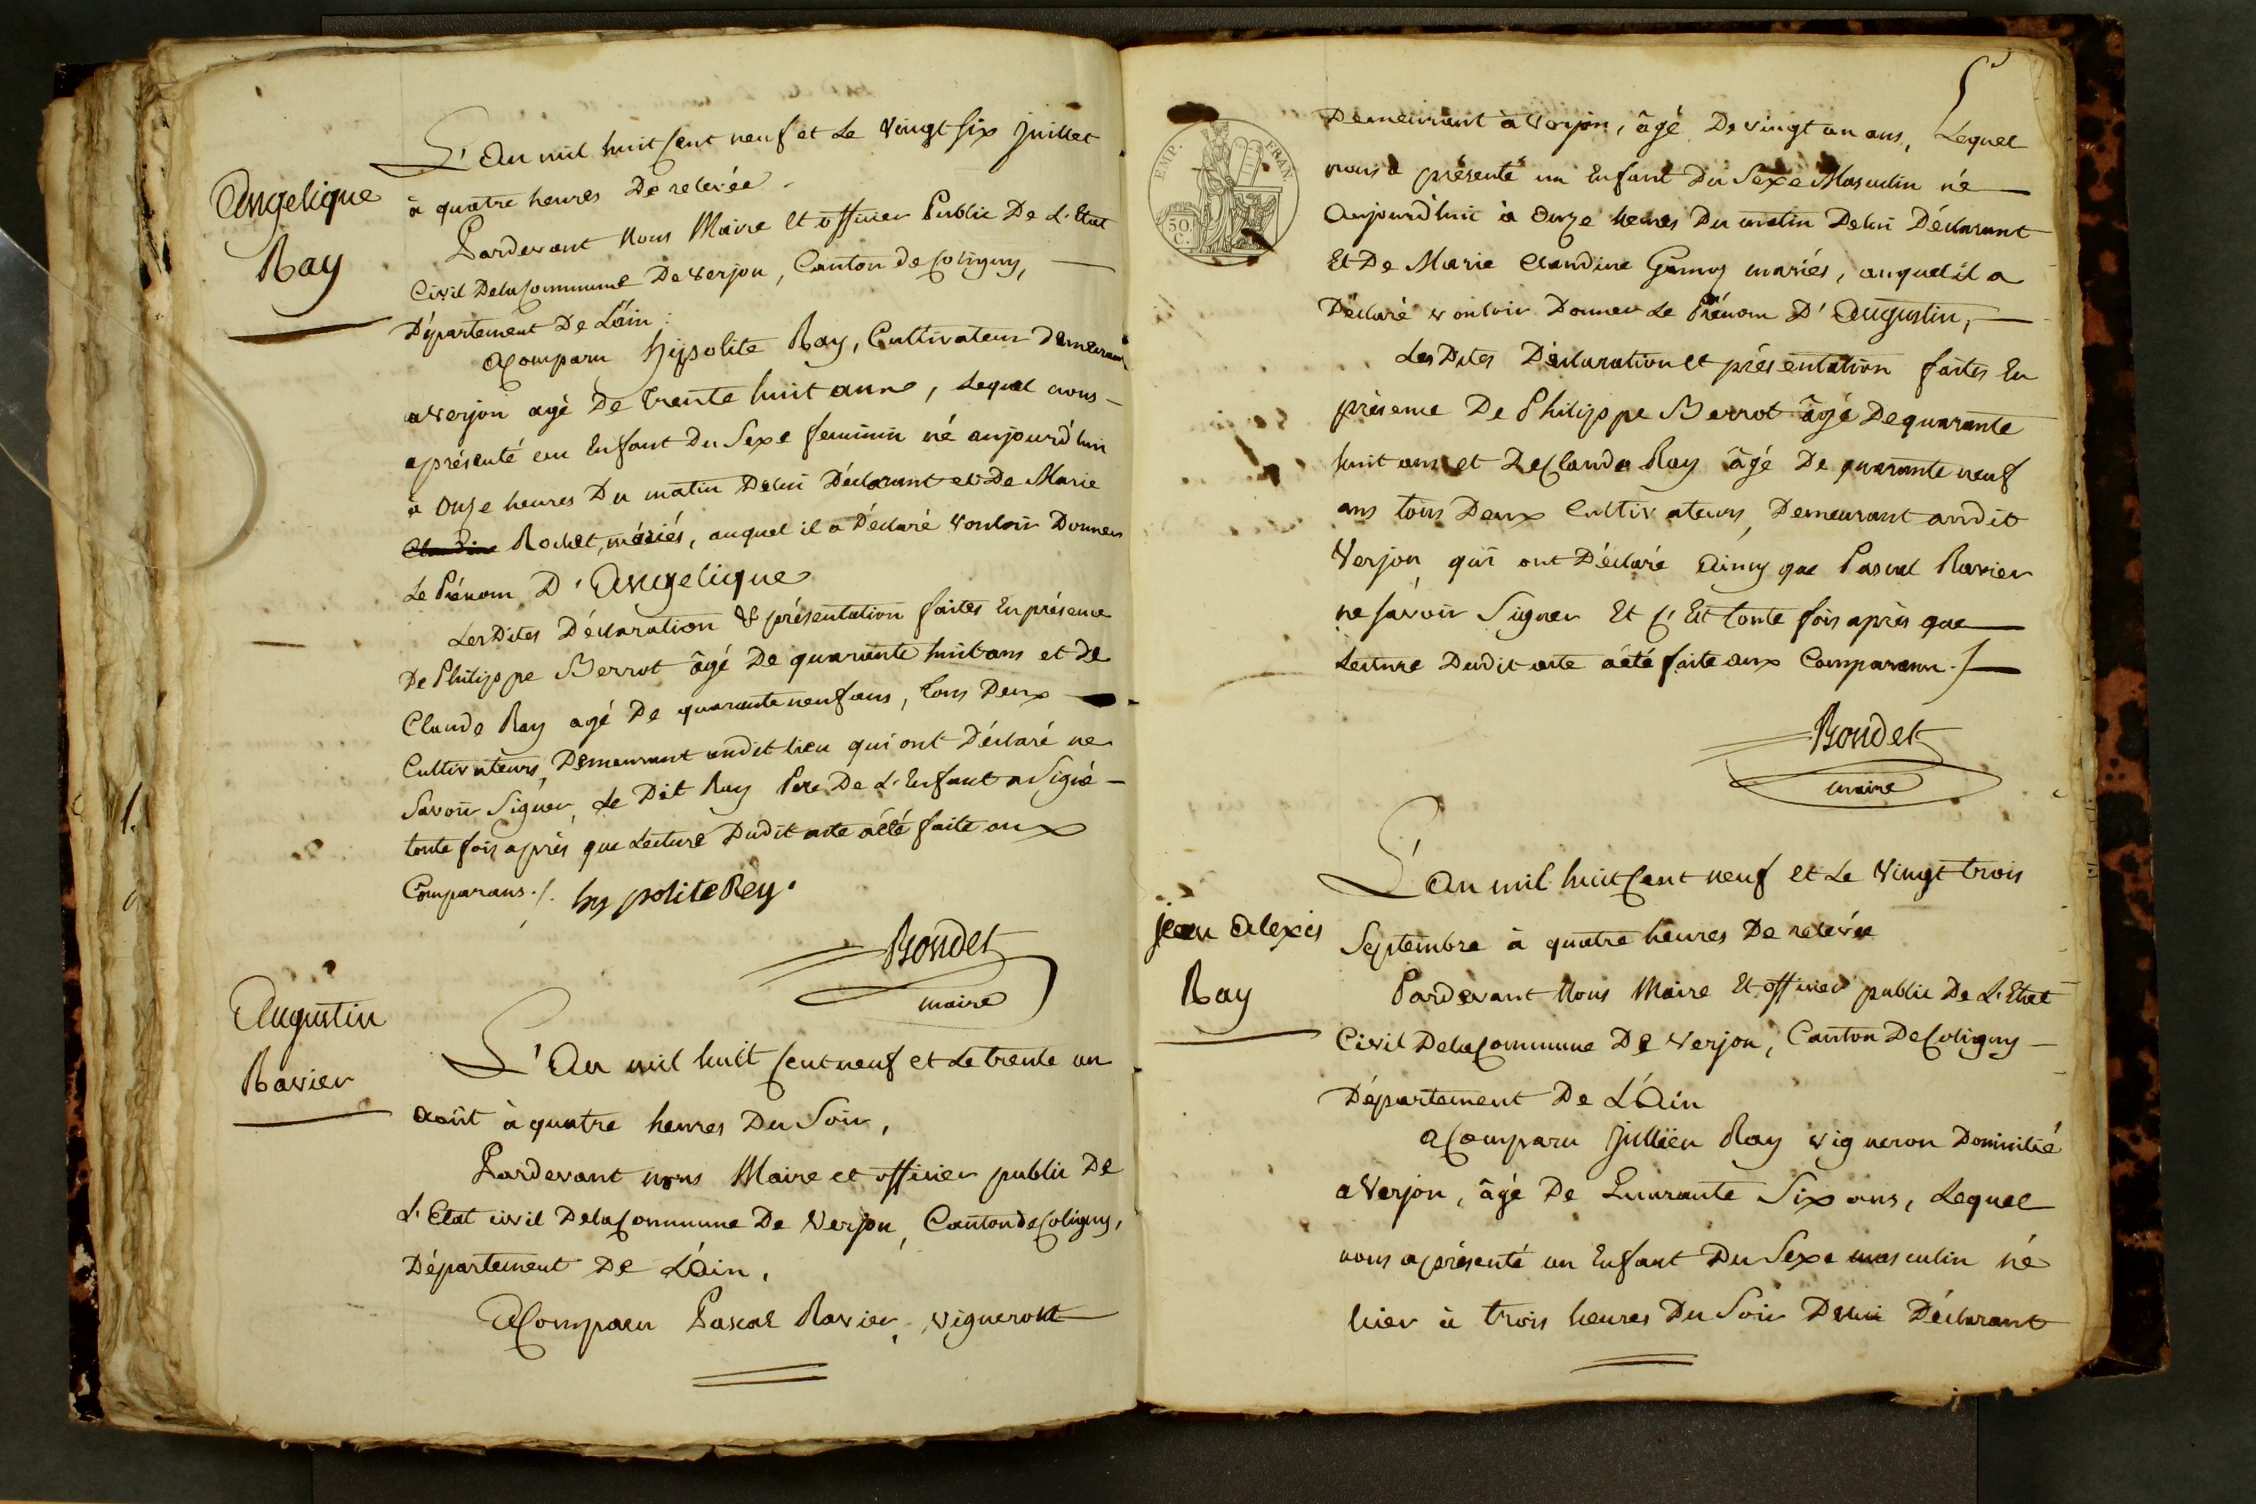 Angelique
Ray
L'An mil huit Cent neuf et Le vingt six juillet
à quatre heures De relevée.
Pardevant Nous Maire et officier Public De L'Etat
Civil Dela Commune De Verjon, Canton de Coligny,
Département De L'ain;
a Comparu hypolite Ray, Cultivateur Demeurant
a Verjon agé De trente huit anns, Lequel nous
a présenté un Enfant Du Sexe feminin né aujourd'hui
à Onze heures Du matin Delui Déclarant et De Marie
Claudine Rochet, mériés, auquel il a Déclaré vouloir Donner
Le Prénom D'Angelique
Les Dites Déclaration & présentation faites En présence
De Philippe Berrot âgé De quarante huit ans et De
Claude Ray agé De quarante neuf ans, tous Deux
Cultivateurs, Demeurant audit lieu qui ont Déclaré ne
Savoir Signer, Le Dit Ray Pere De L'Enfant a Signé
toute fois après que Lecture Dudit acte a été faite aux
Comparans./. hypolite Rey.
Bondet
maire
Augustin
Ravier
L'An mil huit Cent neuf et Le trente un
Août à quatre heures Du Soir,
Pardevant nous Maire et officier public De
L'Etat civil Dela Commune De Verjon, Canton de Coligny,
Département De L'Ain,
A Comparu Pascal Ravier, vigneront
EMP. FRAN.
50 C.
Demeurant à Verjon, âgé De vingt un ans, Lequel
nous a présenté un Enfant Du Sexe Masculin né
Aujourd'huit à Onze heures Du matin Delui Déclarant
Et De Marie Claudine mariés, auquel il a
Déclaré vouloir Donner Le Prénom D'Augustin,
Les Dites Déclaration et présentation faites En
présence De Philippe Berrot âgé De quarante
huit ans et De Claude Ray âgé De quarante neuf
ans tous Deux Cultivateurs, Demeurant audit
Verjon, qui ont Déclaré Ainsy que Pascal Ravier
ne Savoir Signer Et C'Est toute fois après que
Lecture Dudit acte a été faite aux Comparans./.
Bondet
maire
jean Alexis
Ray
L'An mil huit Cent neuf et Le vingt trois
Septembre à quatre heures De relevée
Pardevant Nous Maire Et officier public De L'Etat
Civil Dela Commune De Verjon, Canton De Coligny
Département De L'Ain
a Comparu jullien Ray vigneron Domicilié
a Verjon, âgé De Quarante Six ans, Lequel
nous a présenté un Enfant Du Sexe masculin né
hier à trois heures Du Soir Delui Déclarant